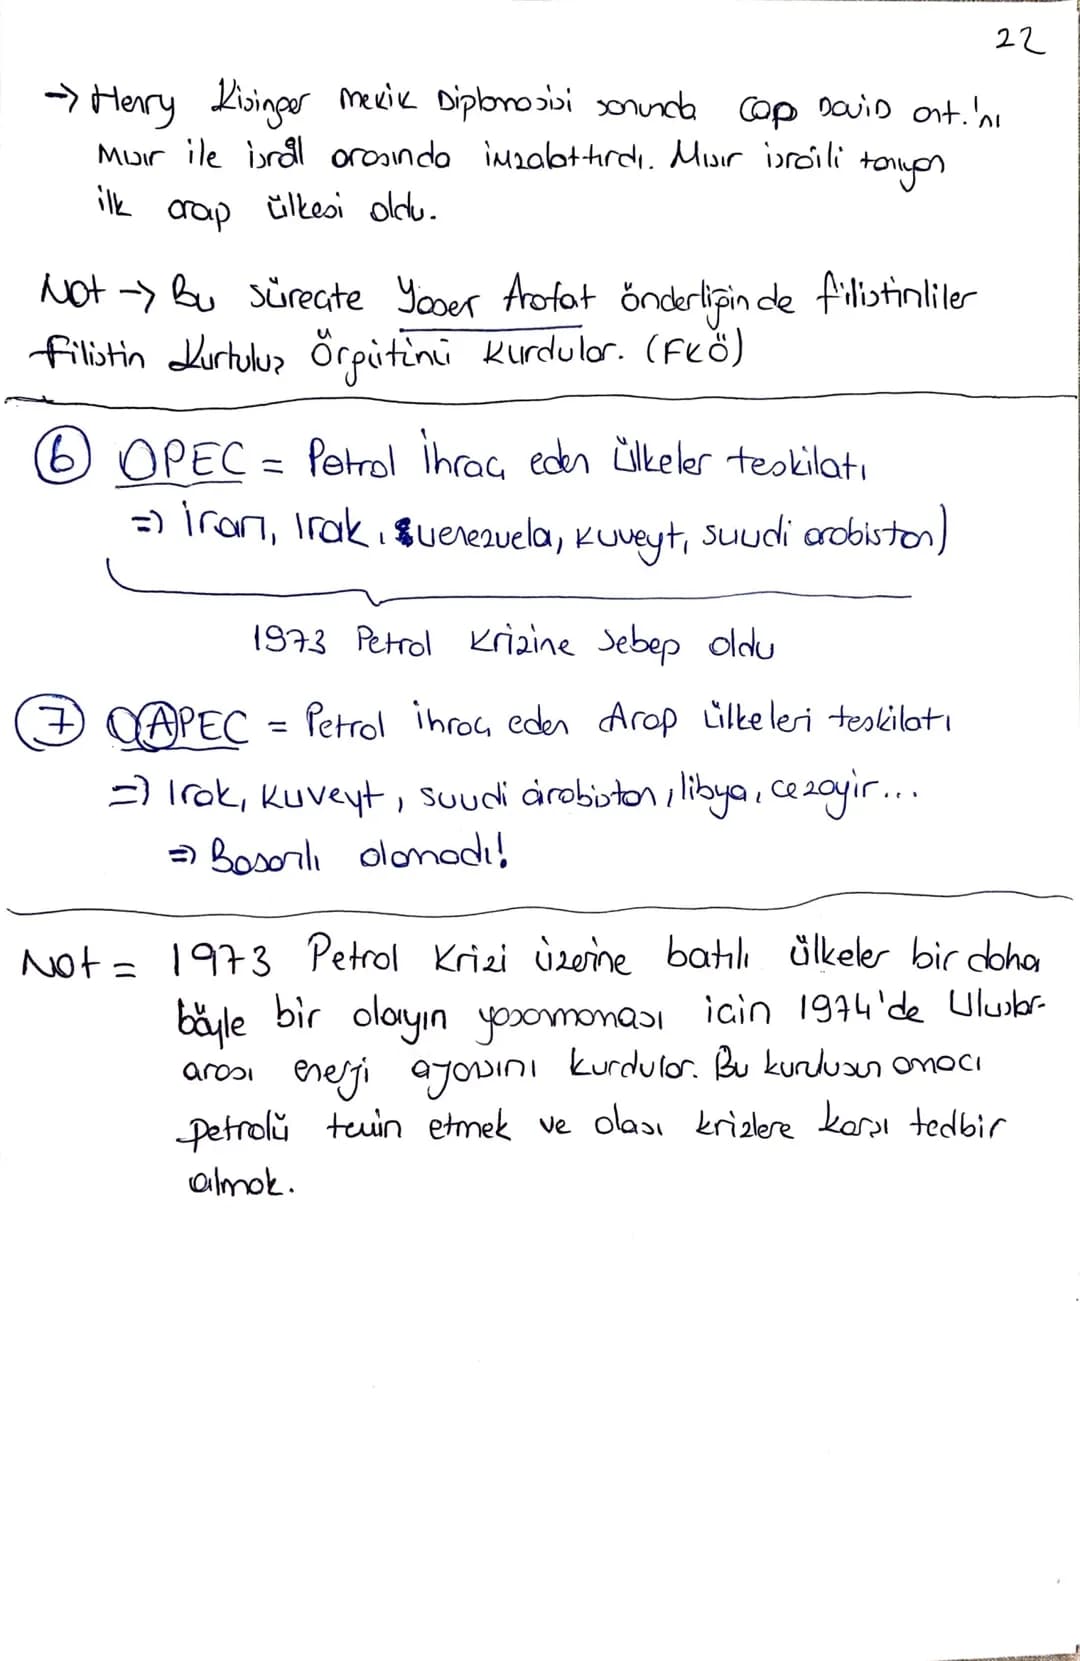 22
→ Henry Kisinger mekik Diplomasisi sonunda Cap David ant.'nı
Mısır ile İsrail arasında imzalattırdı. Mısır israili tanıyan
ilk arap ülkesi oldu.
Not → Bu süreçte Yaser Arafat önderliğinde filistinliler
filistin Kurtuluş Örgütünü kurdular. (FKÖ)
6 OPEC = Petrol İhraç eden Ülkeler teskilatı
⇒ İran, Irak, Venezuela, Kuveyt, suudi arabistan)
1973 Petrol Krizine Sebep oldu
7 OAPEC = Petrol ihraç eden Arap Ülkeleri teskilatı
⇒ Irak, Kuveyt, suudi arabistan, libya, cezayir...
⇒ Basarılı olamadı!
Not = 1973 Petrol Krizi üzerine batılı ülkeler bir daha
böyle bir olayın yasanmaması icin 1974'de Uluslar-
arası enerji ajansını kurdular. Bu kurulusun amacı
petrolü temin etmek ve olası krizlere karşı tedbir
almak.